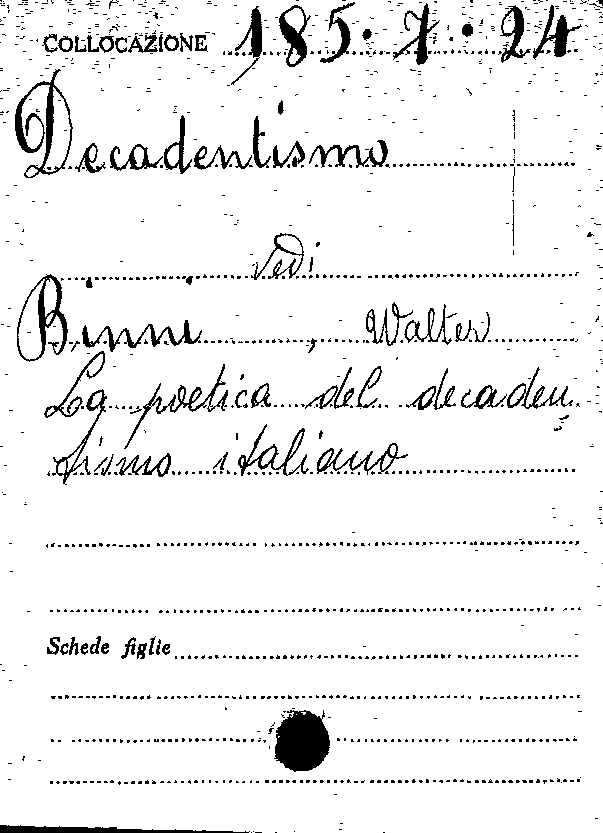 COLLOCAZIONE 185.7.24
Decadentismo
vedi
Binni, Walter
La poetica del decaden=
tismo italiano
Schede figlie